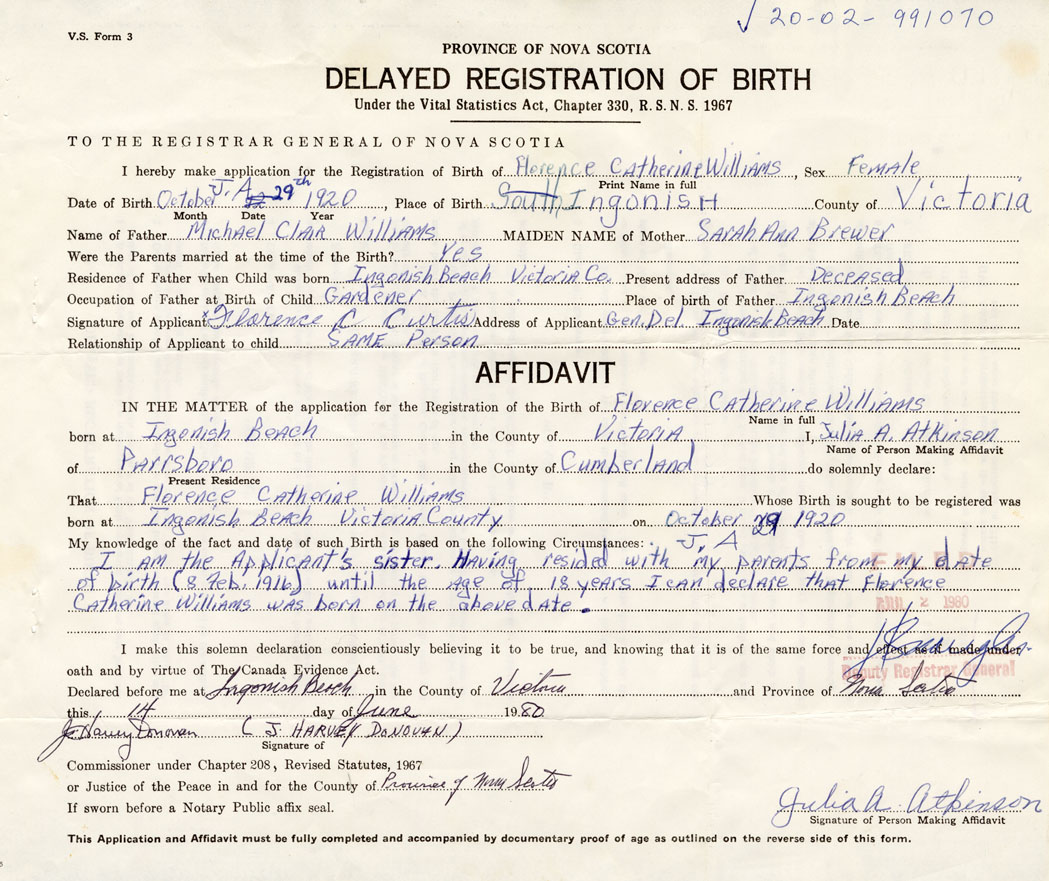 ✓ 20-02-991070
V.S. Form 3
PROVINCE OF NOVA SCOTIA
DELAYED REGISTRATION OF BIRTH
Under the Vital Statistics Act, Chapter 330, R.S.N.S. 1967
TO THE REGISTRAR GENERAL OF NOVA SCOTIA
I hereby make application for the Registration of Birth of Florence Catherine Williams, Sex Female
Print Name in full
J. A
Date of Birth October 29th 1920, Place of Birth South Ingonish County of Victoria
Month Date Year
Name of Father Michael Clair Williams MAIDEN NAME of Mother Sarah Ann Brewer
Were the Parents married at the time of the Birth? Yes
Residence of Father when Child was born Ingonish Beach Victoria Co. Present address of Father Deceased
Occupation of Father at Birth of Child Gardener Place of birth of Father Ingonish Beach
Signature of Applicant x Florence C Curtis Address of Applicant Gen. Del. Ingonish Beach Date
Relationship of Applicant to child SAME Person
AFFIDAVIT
IN THE MATTER of the application for the Registration of the Birth of Florence Catherine Williams
Name in full
born at Ingonish Beach in the County of Victoria I, Julia A. Atkinson
Name of Person Making Affidavit
of Parrsboro in the County of Cumberland do solemnly declare:
Present Residence
That Florence Catherine Williams Whose Birth is sought to be registered was
born at Ingonish Beach Victoria County on October 29 1920
29
My knowledge of the fact and date of such Birth is based on the following Circumstances: J. A
I am the Applicant's sister. Having resided with my parents from my date
of birth (8 Feb. 1916) until the age of 18 years I can declare that Florence
Catherine Williams was born on the above date.
2 1980
I make this solemn declaration conscientiously believing it to be true, and knowing that it is of the same force and effect as if made under
oath and by virtue of The Canada Evidence Act.
Deputy Registrar General
Declared before me at Ingonish Beach in the County of Victoria and Province of Nova Scotia
this 14 day of June 1980
J. Harvey Donovan (J. HARVEY DONOVAN)
Signature of
Commissioner under Chapter 208, Revised Statutes, 1967
or Justice of the Peace in and for the County of Province of Nova Scotia
If sworn before a Notary Public affix seal.
Julia A. Atkinson
Signature of Person Making Affidavit
This Application and Affidavit must be fully completed and accompanied by documentary proof of age as outlined on the reverse side of this form.